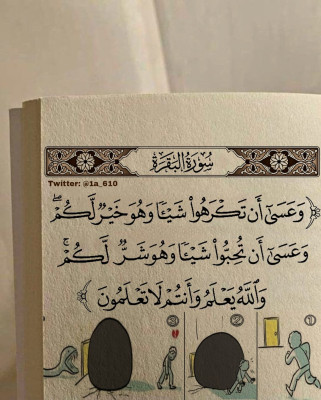 سُورَةُ البَقَرَةِ
Twitter: @1a_610
﴿وَعَسَىٰٓ أَن تَكْرَهُوا۟ شَيْـًٔا وَهُوَ خَيْرٌ لَّكُمْ ۖ
وَعَسَىٰٓ أَن تُحِبُّوا۟ شَيْـًٔا وَهُوَ شَرٌّ لَّكُمْ ۗ
وَٱللَّهُ يَعْلَمُ وَأَنتُمْ لَا تَعْلَمُونَ﴾
③ ② ①